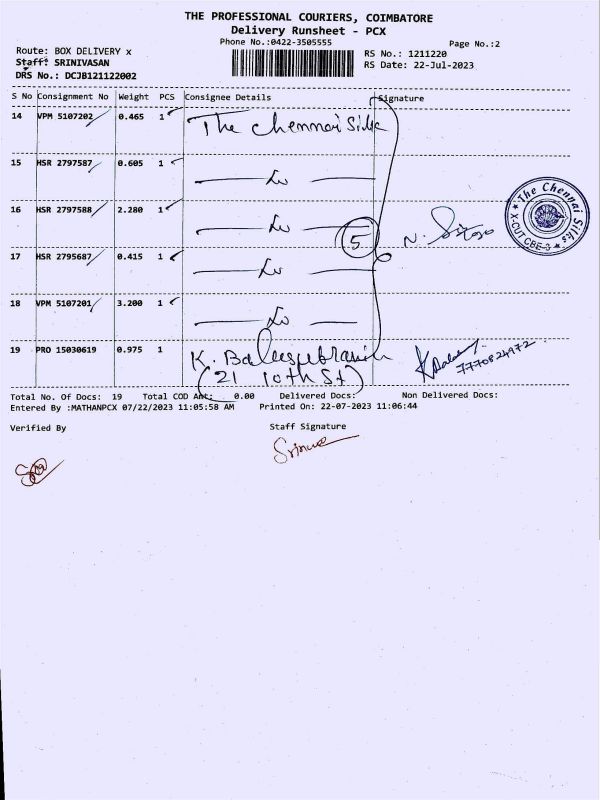 THE PROFESSIONAL COURIERS, COIMBATORE
Delivery Runsheet - PCX
Phone No.:0422-3505555
Page No.:2
Route: BOX DELIVERY x
RS No.: 1211220
Staff: SRINIVASAN
RS Date: 22-Jul-2023
DRS No.: DCJB121122002
S No Consignment No Weight PCS Consignee Details Signature
14 VPM 5107202 0.465 1 The Chennai Silk
15 HSR 2797587 0.605 1
16 HSR 2797588 2.280 1
5
The Chennai Silks
X-CUT CBE-3
17 HSR 2795687 0.415 1
18 VPM 5107201 3.200 1
19 PRO 15030619 0.975 1 K. Balasubramani
(21 10th St)
7770824972
Total No. Of Docs: 19 Total COD Amt: 0.00 Delivered Docs: Non Delivered Docs:
Entered By :MATHANPCX 07/22/2023 11:05:58 AM Printed On: 22-07-2023 11:06:44
Verified By Staff Signature